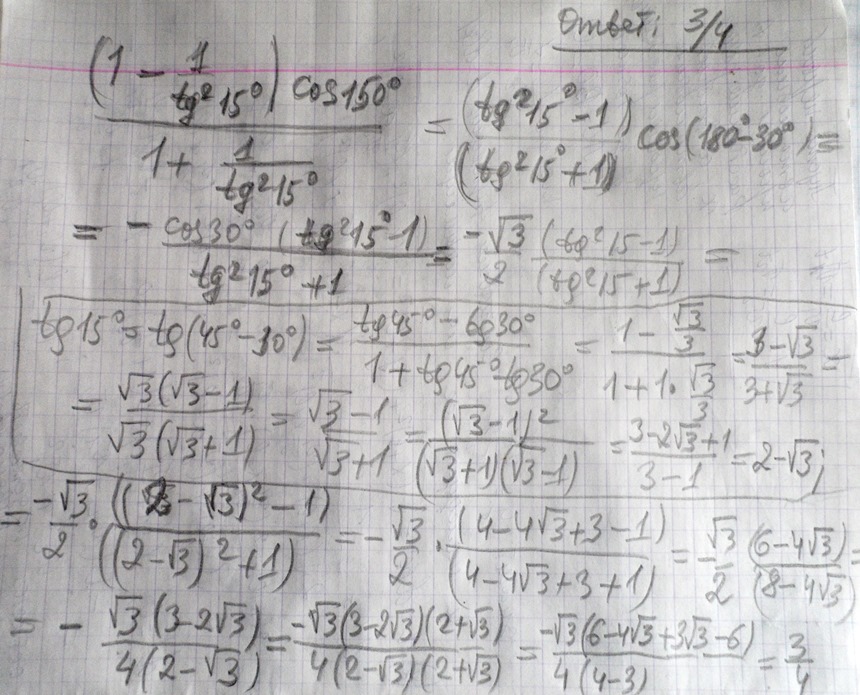 Ответ: 3/4
((1 - 1/tg²15°) cos150°)/(1 + 1/tg²15°) = ((tg²15° - 1)/(tg²15° + 1)) cos(180° - 30°) =
= - (cos30° (tg²15° - 1))/(tg²15° + 1) = -√3/2 (tg²15 - 1)/(tg²15 + 1) =
tg15° = tg(45° - 30°) = (tg45° - tg30°)/(1 + tg45° tg30°) = (1 - √3/3)/(1 + 1·√3/3) = (3 - √3)/(3 + √3) =
= (√3(√3 - 1))/(√3(√3 + 1)) = (√3 - 1)/(√3 + 1) = (√3 - 1)²/((√3 + 1)(√3 - 1)) = (3 - 2√3 + 1)/(3 - 1) = 2 - √3;
= -√3/2 · ((2 - √3)² - 1)/((2 - √3)² + 1) = -√3/2 · (4 - 4√3 + 3 - 1)/(4 - 4√3 + 3 + 1) = -√3/2 (6 - 4√3)/(8 - 4√3) =
= - (√3(3 - 2√3))/(4(2 - √3)) = (-√3(3 - 2√3)(2 + √3))/(4(2 - √3)(2 + √3)) = (-√3(6 - 4√3 + 3√3 - 6))/(4(4 - 3)) = 3/4